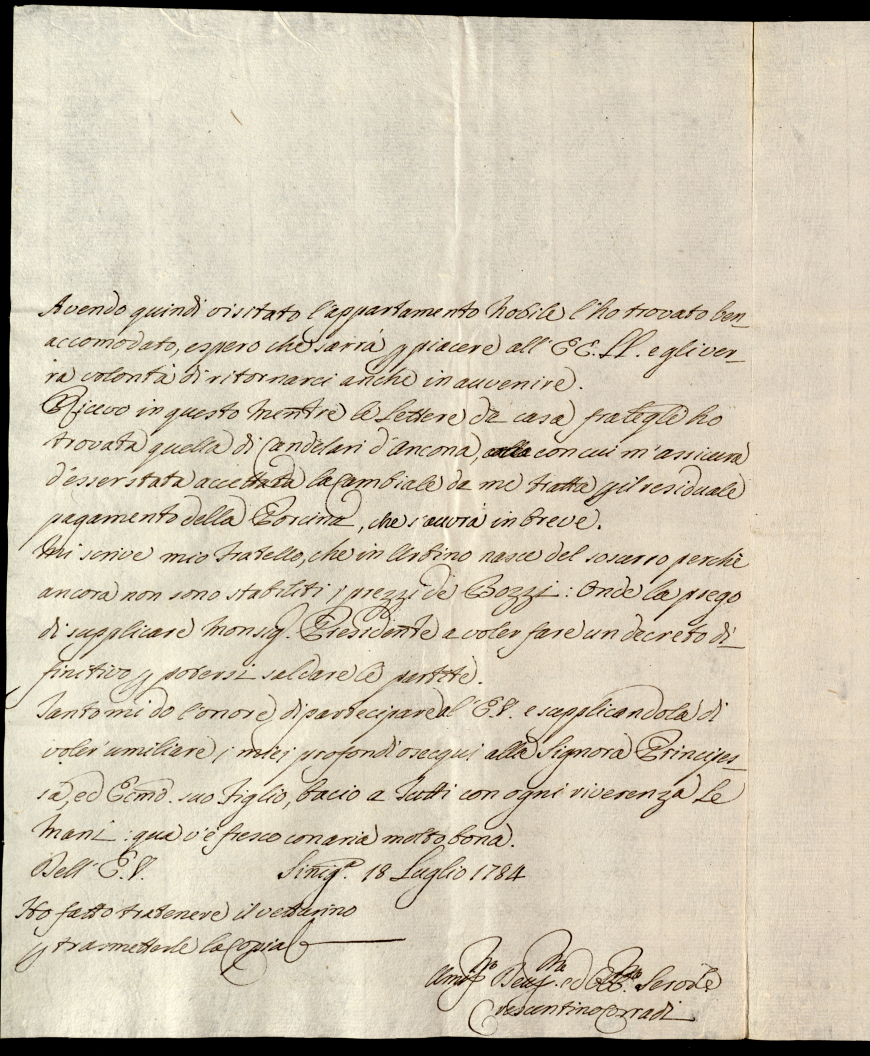 Avendo quindi visitato l'appartamento Nobile l'ho trovato ben
accomodato, e spero che sarrà p piacere all'EE.LL. e gli ver-
rà volontà di ritornarci anche in auvenire.
Ricevo in questo Mentre le Lettere de casa frà le qle ho
trovata quella di Candelari d'Ancona, con cui m'assicura
d'esser stata accettata la Cambiale da me tratta p il residuale
pagamento della Porcina, che s'auvrà in breve.
Mi scrive mio Fratello, che in Urbino nasce del susurro perchè
ancora non sono stabiliti i prezzi de Bozzi: Onde la prego
di supplicare Monsig. Presidente a voler fare un decreto di-
finitivo p potersi saldare le partite.
Tanto mi do l'onore di partecipare al'E.V. e supplicandola di
voler umiliare i miei profondi osequi alla Signora Principes-
sa, ed Ecmo. suo Figlio, bacio a Tutti con ogni riverenza Le
Mani: qua v'è fresco con aria molto bona.
Dell'E.V. Sinig.a 18 Luglio 1784
Ho fatto tratenere il vetturino
p trasmetterle la Copia
ed Servole
Crescentino Corradi